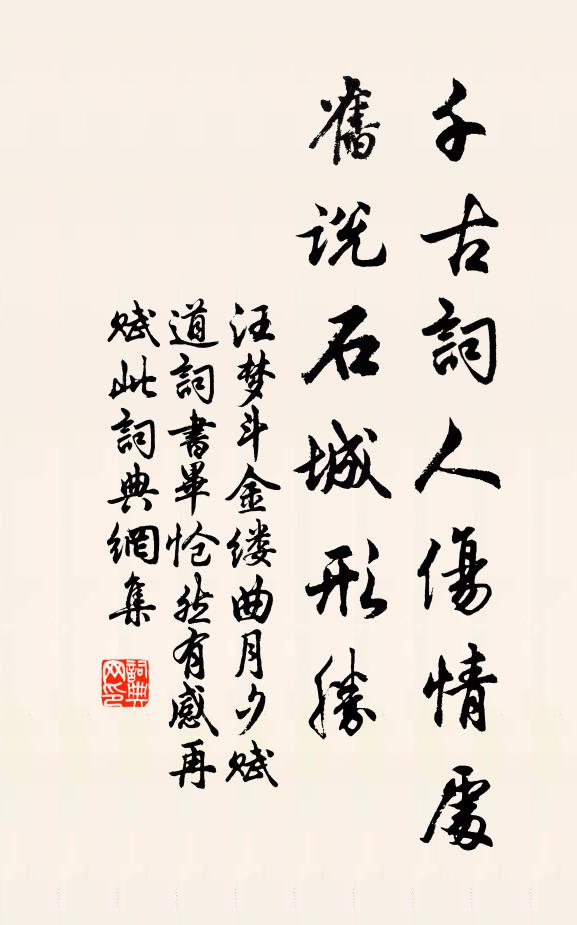 千古詞人傷情處
舊說石城形勝
汪梦斗金缕曲月夕賦
道詞書畢怆然有感再
賦此詞典網集
詞典网印